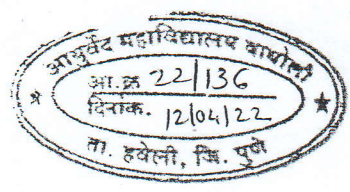 आयुर्वेद महाविद्यालय वाघोली
आ.क्र 22/136
दिनांक. 12/04/22
ता. हवेली, जि. पुणे